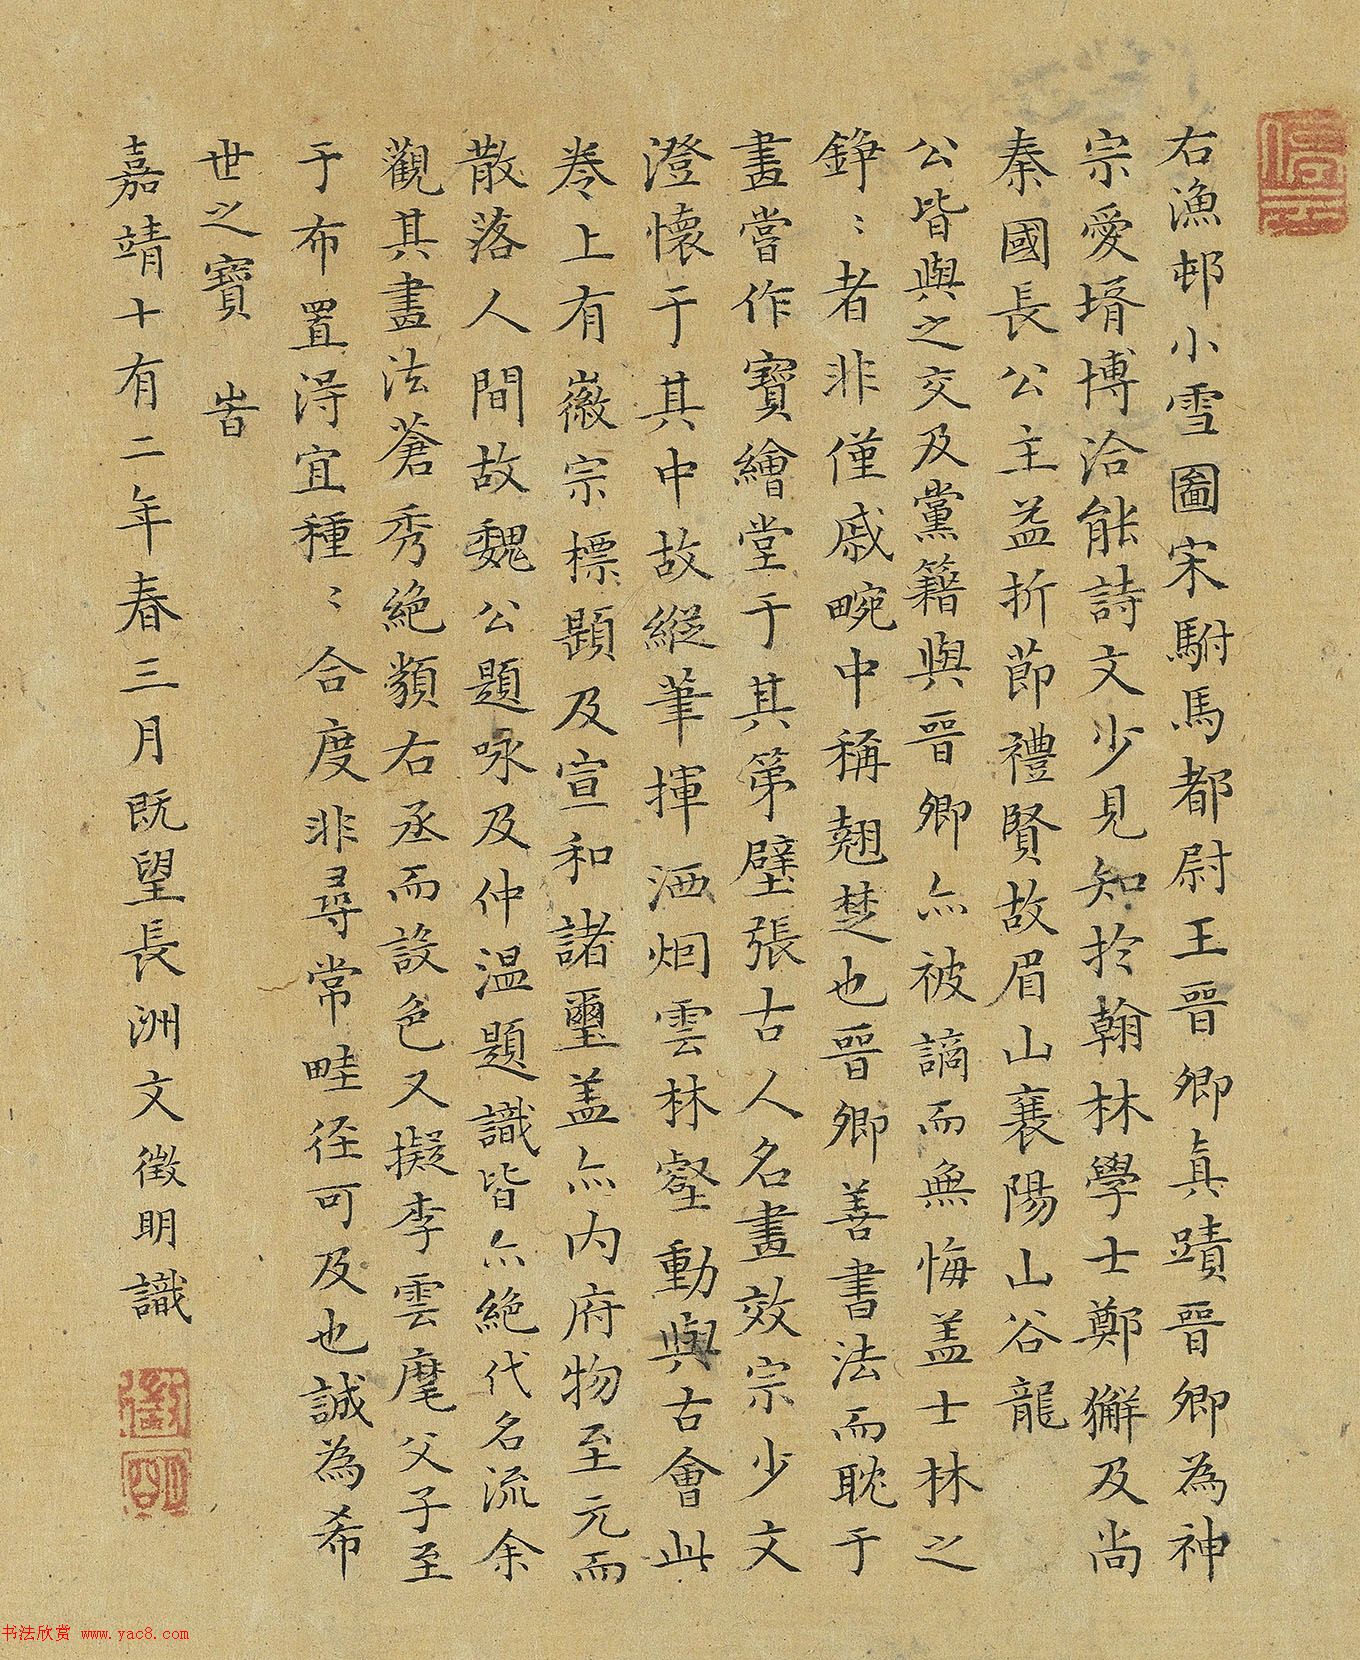 右漁邨小雪圖宋駙馬都尉王晉卿真蹟晉卿為神
宗愛壻博洽能詩文少見知於翰林學士鄭獬及尚
秦國長公主益折節禮賢故眉山襄陽山谷龍
公皆與之交及黨籍與晉卿亦被謫而無悔盖士林之
錚〻者非僅戚畹中稱翹楚也晉卿善書法而耽于
畫嘗作寶繪堂于其第壁張古人名畫效宗少文
澄懷于其中故縱筆揮洒烟雲林壑動與古會此
卷上有徽宗標題及宣和諸璽盖亦内府物至元而
散落人間故魏公題咏及仲温題識皆亦絶代名流余
觀其畫法蒼秀絶類右丞而設色又擬李雲麾父子至
于布置淂宜種〻合度非尋常畦徑可及也誠為希
世之寶　旹
嘉靖十有二年春三月既望長洲文徵明識
停云
徵明
书法欣赏 www.yac8.com